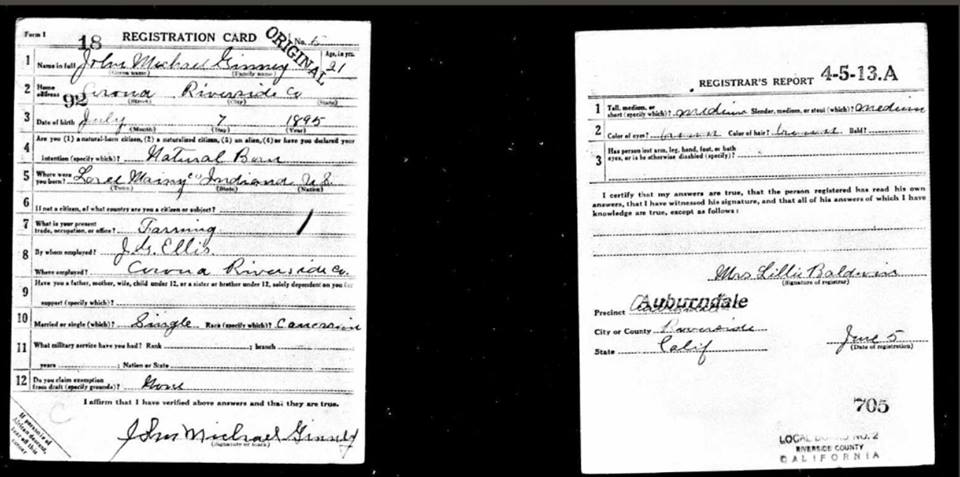 Form 1
18
REGISTRATION CARD
No. 5
ORIGINAL
1 Name in full John Michael Ginney Age, in yrs. 21
(Given name) (Family name)
2 Home address 92 Corona Riverside Co
(Street) (City) (State)
3 Date of birth July 7 1895
(Month) (Day) (Year)
4 Are you (1) a natural-born citizen, (2) a naturalized citizen, (3) an alien, (4) or have you declared your
intention (specify which)? Natural Born
5 Where were you born? Indiana U.S.
(Town) (State) (Nation)
6 If not a citizen, of what country are you a citizen or subject?
7 What is your present trade, occupation, or office? Farming
8 By whom employed? J. G. Ellis
Where employed? Corona Riverside Co.
9 Have you a father, mother, wife, child under 12, or a sister or brother under 12, solely dependent on you for
support (specify which)?
10 Married or single (which)? Single Race (specify which)?
11 What military service have you had? Rank ; branch
years ; Nation or State
12 Do you claim exemption from draft (specify grounds)? None
I affirm that I have verified above answers and that they are true.
John Michael Ginney
(Signature or mark)
If person is of
African descent,
tear off this
corner
REGISTRAR'S REPORT 4-5-13.A
1 Tall, medium, or short (specify which)? medium Slender, medium, or stout (which)? medium
2 Color of eyes? brown Color of hair? brown Bald?
3 Has person lost arm, leg, hand, foot, or both
eyes, or is he otherwise disabled (specify)?
I certify that my answers are true, that the person registered has read his own
answers, that I have witnessed his signature, and that all of his answers of which I have
knowledge are true, except as follows:
Mrs Lillie Baldwin
(Signature of registrar)
Precinct Auburndale
City or County Riverside
State Calif
June 5
(Date of registration)
705
LOCAL BOARD NO. 2
RIVERSIDE COUNTY
CALIFORNIA